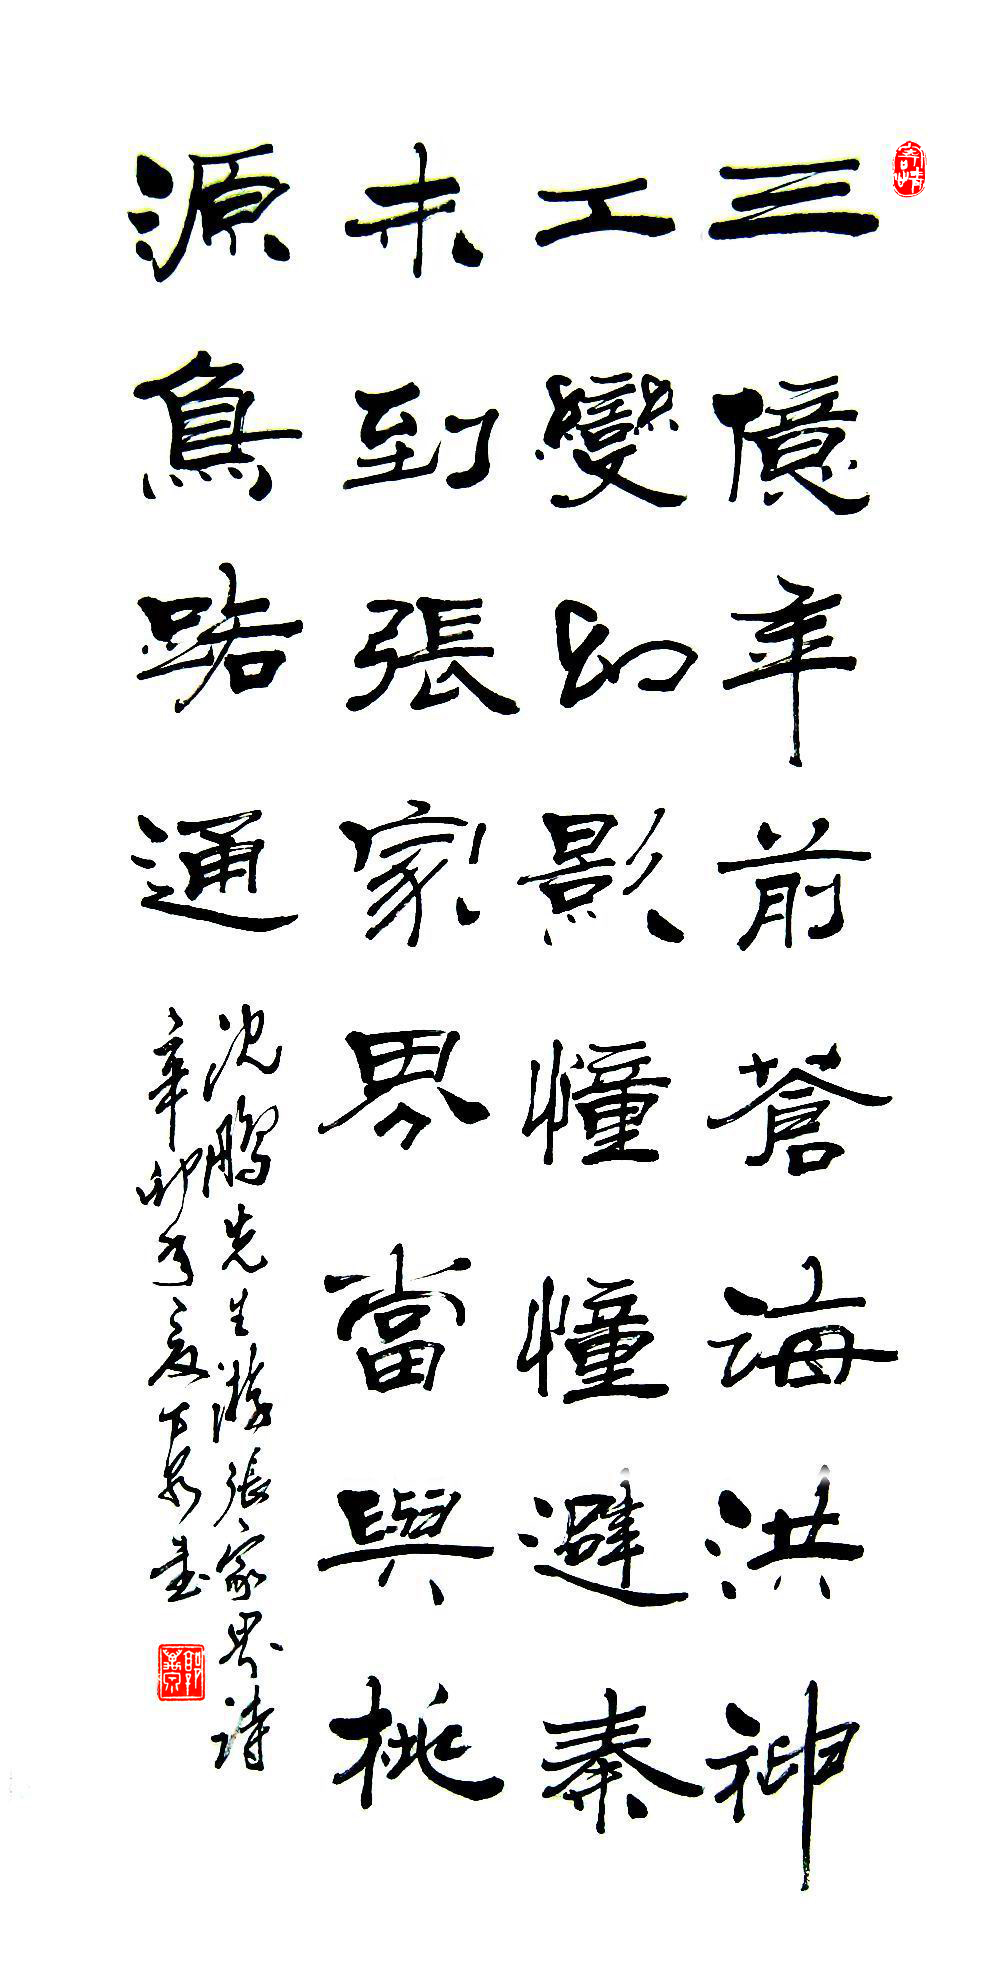 三億年前蒼海洪神
工變幻影憧憧避秦
未到張家界當與桃
源負路通
沈鵬先生游張家界詩
辛卯年夏
書
寄情